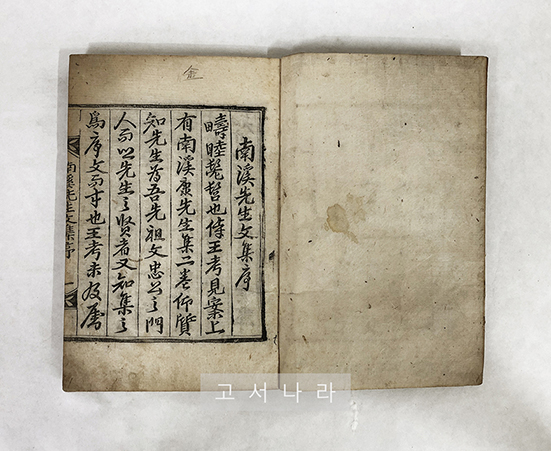 南溪先生文集序
疇睦髫髻也侍王考見案上
有南溪康先生集二卷仰質
知先生爲吾先祖文忠公之門
人而以先生之賢者又知集之
爲序文而出也王考未及屬
南溪先生文集序
一
고서나라